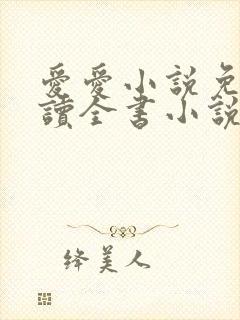 愛愛小説免
讀全書小説
绛美人